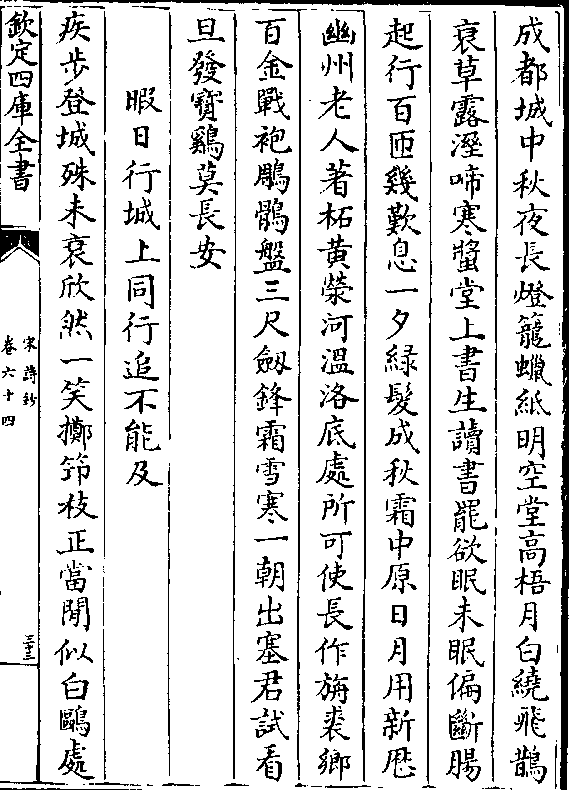 成都城中秋夜長燈籠蠟紙明空堂高梧月白繞飛鵲
衰草露溼啼寒螿堂上書生讀書罷欲眠未眠偏斷腸
起行百匝幾歎息一夕綠髮成秋霜中原日月用新厯
幽州老人著柘黄滎河溫洛底處所可使長作旃裘鄉
百金戰袍鵰鶻盤三尺劔鋒霜雪寒一朝出塞君試看
旦發寶鷄莫長安
暇日行城上同行追不能及
疾步登城殊未衰欣然一笑擲笻枝正當閒似白鷗處
欽定四庫全書
宋詩鈔
卷六十四
三十三